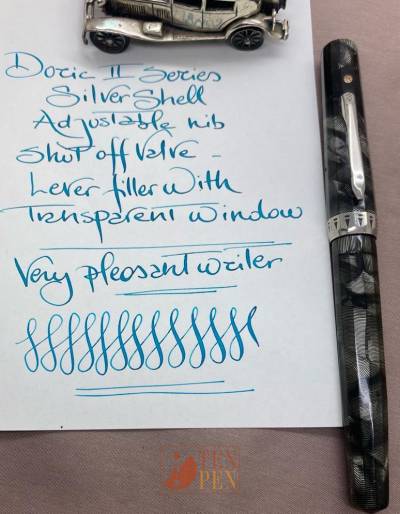 Doric II Series
Silver Shell
Adjustable nib
Shut off Valve -
Lever filler with
Transparent window
Very pleasant writer
TEN
PEN